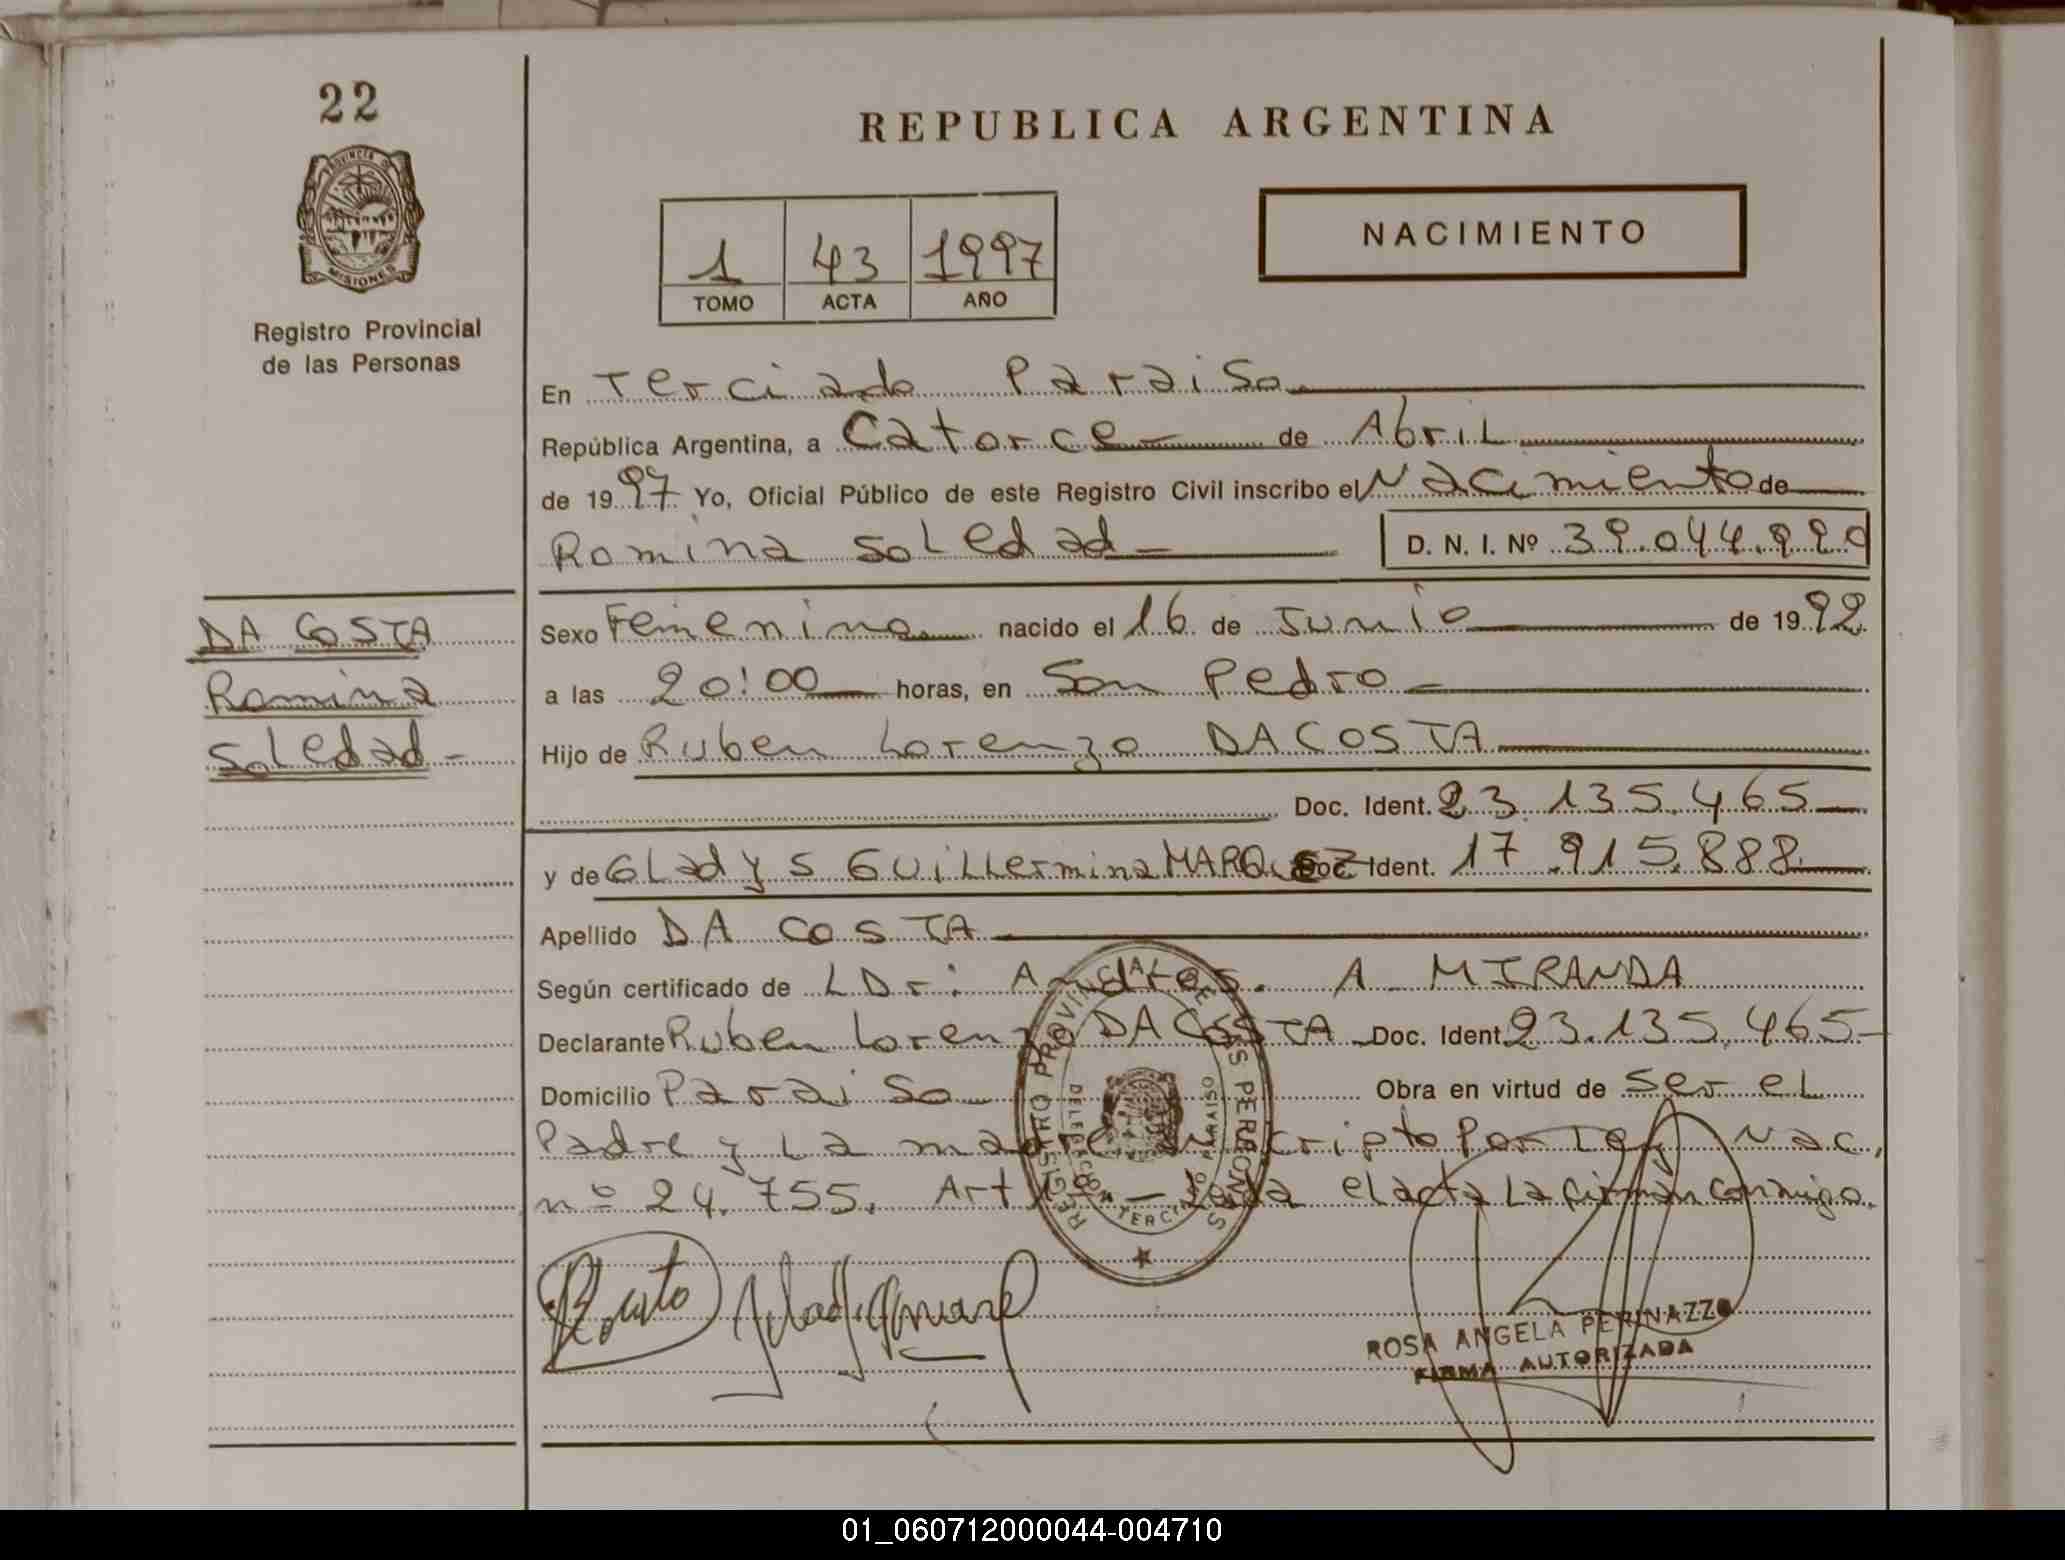 22
REPUBLICA ARGENTINA
PROVINCIA DE
MISIONES
NACIMIENTO
1 43 1997
TOMO ACTA AÑO
Registro Provincial
de las Personas
En Terciado Paraiso
República Argentina, a Catorce de Abril
de 1997 Yo, Oficial Público de este Registro Civil inscribo el Nacimiento de
Romina Soledad D. N. I. Nº 39.044.990
DA COSTA
Romina
Soledad -
Sexo Femenino nacido el 16 de Junio de 1992
a las 20:00 horas, en San Pedro
Hijo de Ruben Lorenzo DA COSTA
Doc. Ident. 23.135.465
y de Gladys Guillermina MARQUEZ Doc. Ident. 17.915.888
Apellido DA COSTA
Según certificado de L Dr: Andres. A. MIRANDA
Declarante Ruben Lorenzo DA COSTA Doc. Ident. 23.135.465-
Domicilio Paraiso Obra en virtud de ser el
Padre y La madre Inscripto Por Ley Nac.
nº 24.755. Art Leida el acta La firman conmigo.
REGISTRO PROVINCIAL DE LAS PERSONAS
DELEGACION TERCIADO PARAISO
ROSA ANGELA PERINAZZO
FIRMA AUTORIZADA
01_060712000044-004710